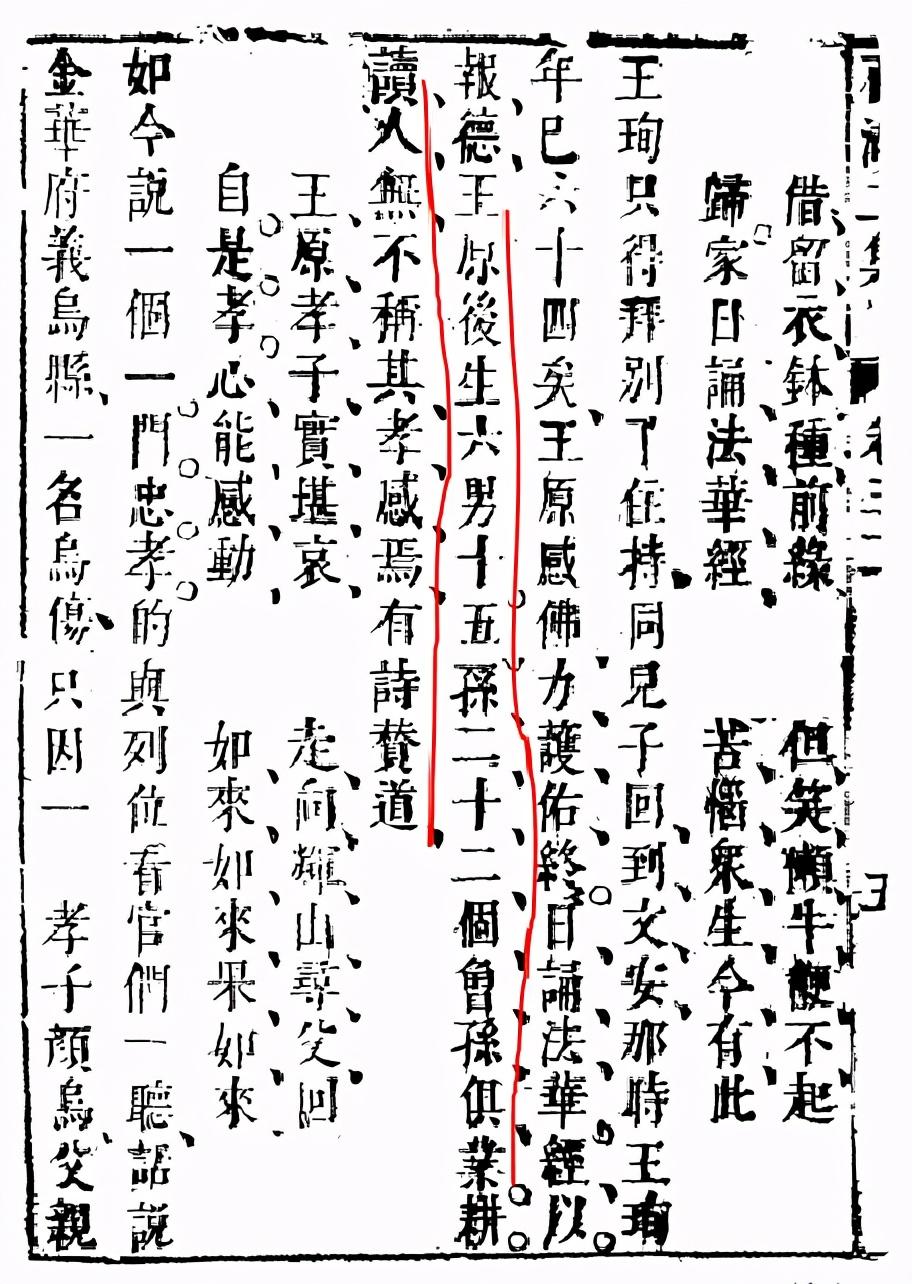 西湖二集　卷三一
借留衣鉢種前緣　但笑懶牛鞭不起
歸家日誦法華經　苦惱眾生今有此
王珣只得拜別了住持同兒子回到文安那時王珣
年已六十四矣王原感佛力護佑終日誦法華經以
報德王原後生六男十五孫二十二個曾孫俱業耕
讀人無不稱其孝感焉有詩贊道
王原孝子實堪哀　走向輝山尋父回
自是孝心能感動　如來如來果如來
如今說一個一門忠孝的與列位看官們一聽話說
金華府義烏縣一名烏傷只因一　孝子顏烏父親